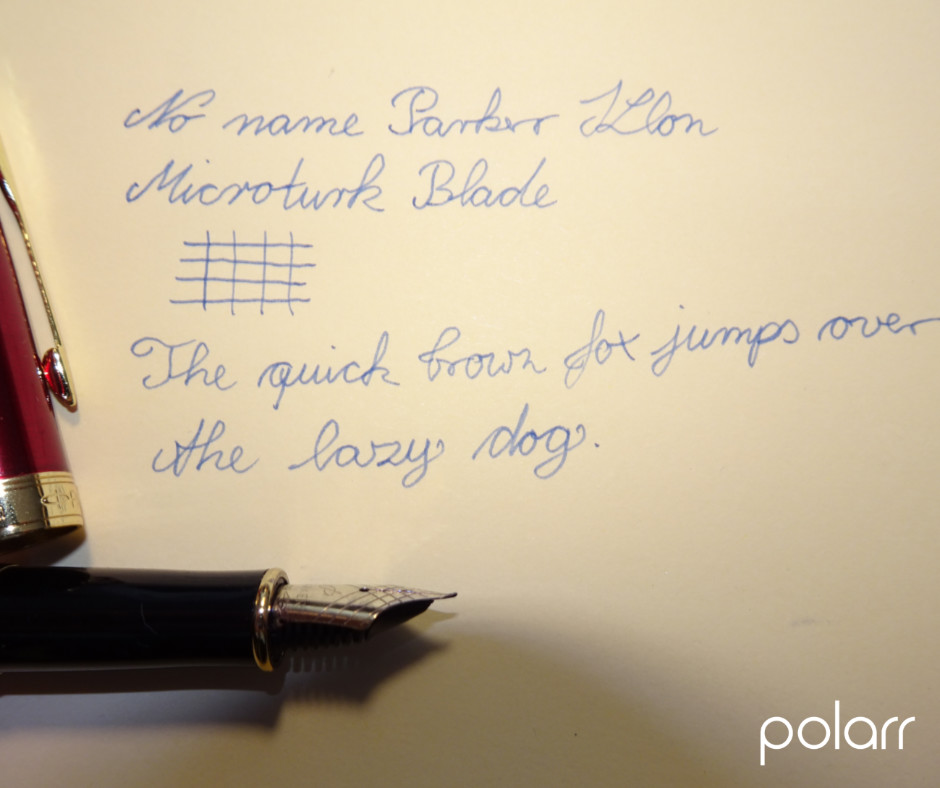 No name Parker
Microturk Blade
The quick brown fox jumps over
the lazy dog.
polarr